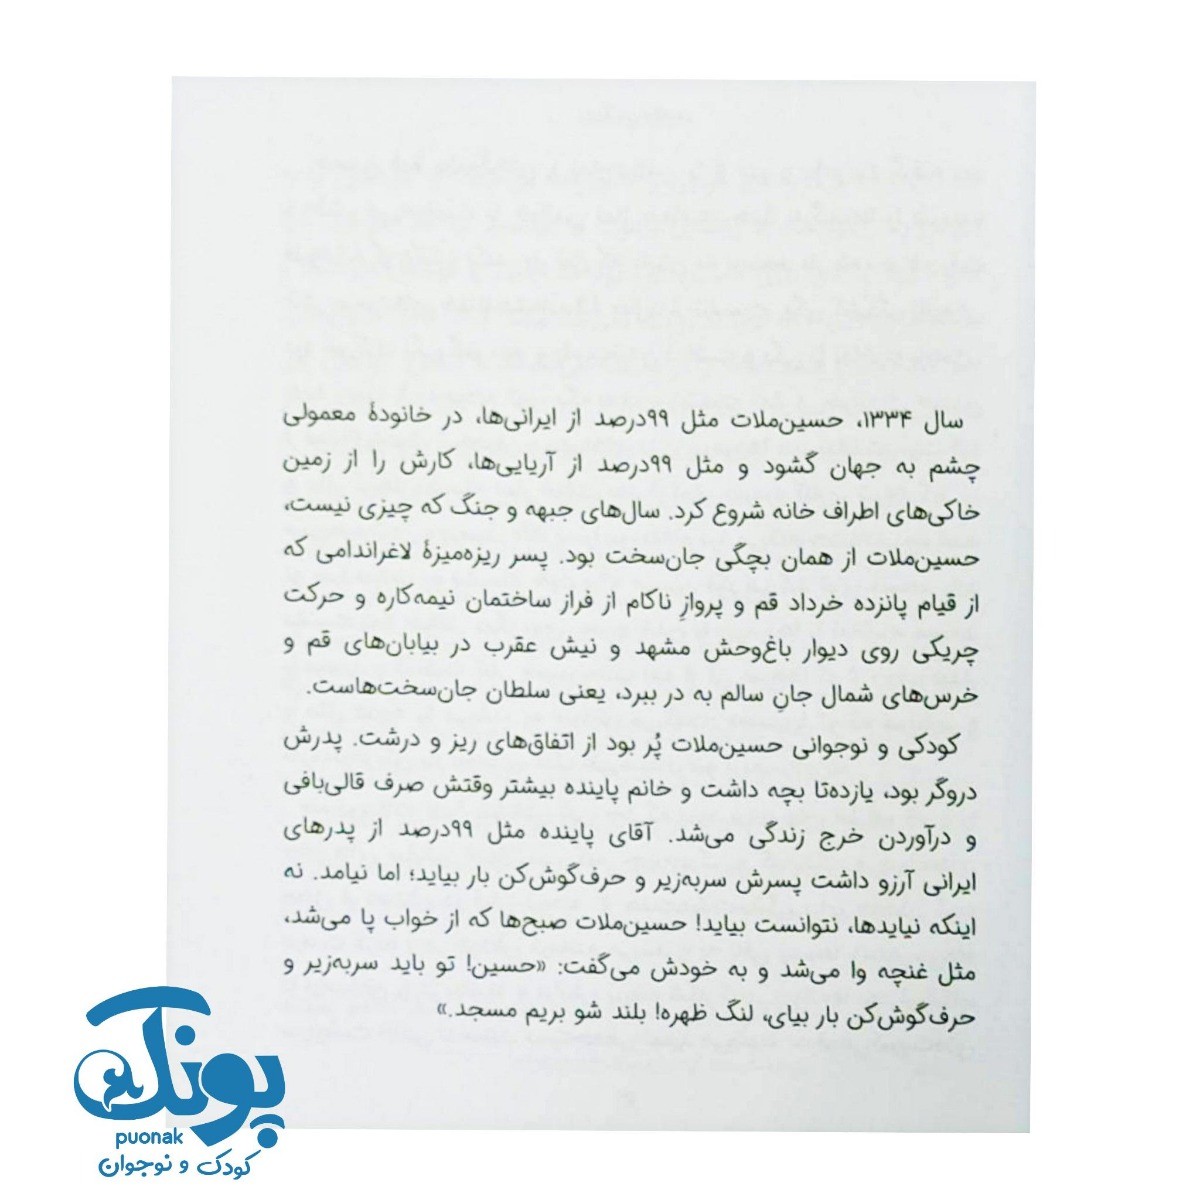 سال ۱۳۳۴، حسین‌ملات مثل ۹۹درصد از ایرانی‌ها، در خانودهٔ معمولی
چشم به جهان گشود و مثل ۹۹درصد از آریایی‌ها، کارش را از زمین
خاکی‌های اطراف خانه شروع کرد. سال‌های جبهه و جنگ که چیزی نیست،
حسین‌ملات از همان بچگی جان‌سخت بود. پسر ریزه‌میزهٔ لاغراندامی که
از قیام پانزده خرداد قم و پروازِ ناکام از فراز ساختمان نیمه‌کاره و حرکت
چریکی روی دیوار باغ‌وحش مشهد و نیش عقرب در بیابان‌های قم و
خرس‌های شمال جانِ سالم به در ببرد، یعنی سلطان جان‌سخت‌هاست.
کودکی و نوجوانی حسین‌ملات پُر بود از اتفاق‌های ریز و درشت. پدرش
دروگر بود، یازده‌تا بچه داشت و خانم پاینده بیشتر وقتش صرف قالی‌بافی
و درآوردن خرج زندگی می‌شد. آقای پاینده مثل ۹۹درصد از پدرهای
ایرانی آرزو داشت پسرش سربه‌زیر و حرف‌گوش‌کن بار بیاید؛ اما نیامد. نه
اینکه نیایدها، نتوانست بیاید! حسین‌ملات صبح‌ها که از خواب پا می‌شد،
مثل غنچه وا می‌شد و به خودش می‌گفت: «حسین! تو باید سربه‌زیر و
حرف‌گوش‌کن بار بیای، لنگ ظهره! بلند شو بریم مسجد.»
پونک
puonak
کودک و نوجوان